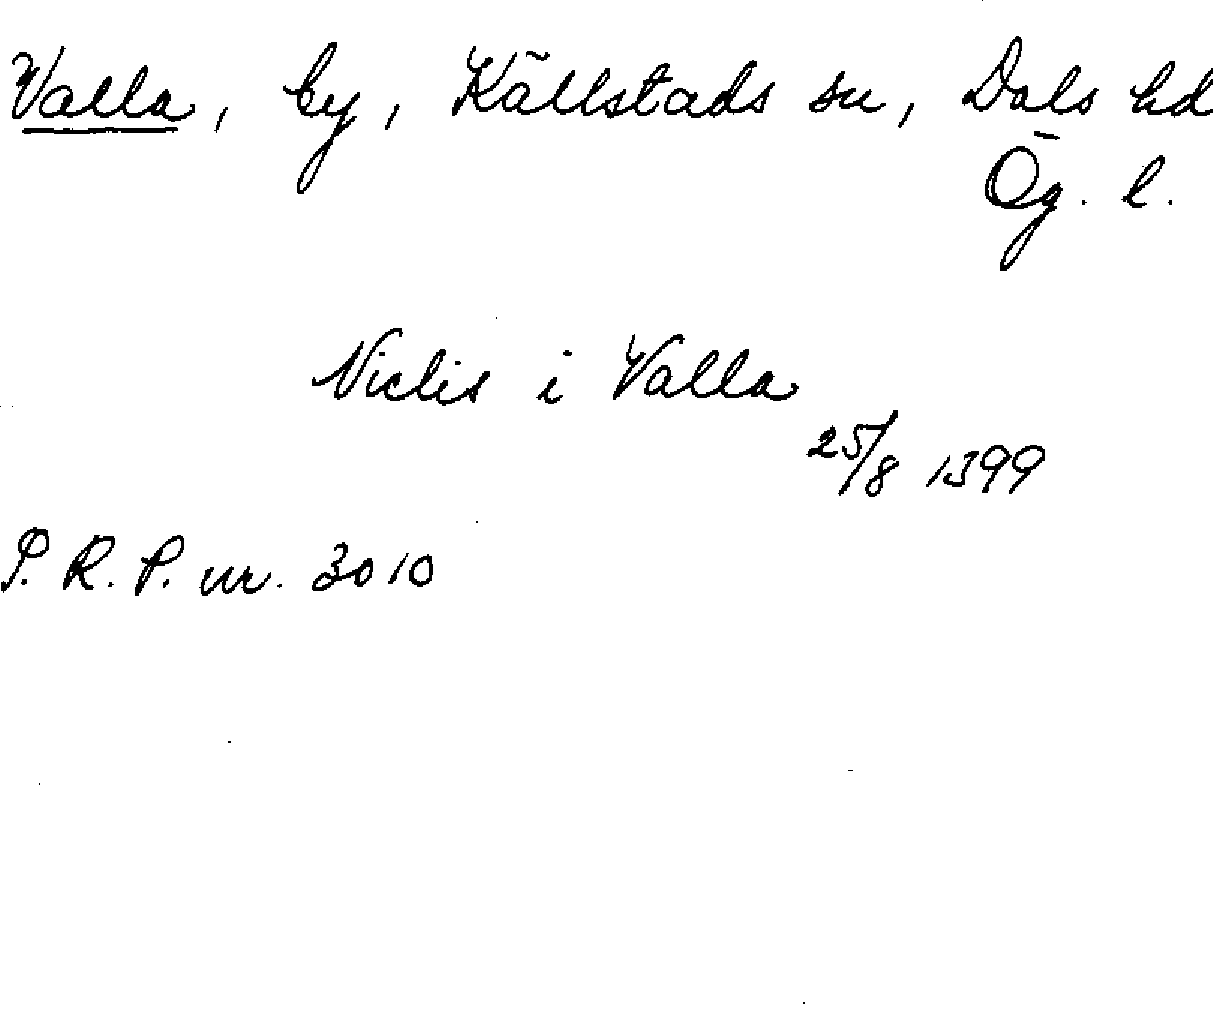 Valla, by, Källstads sn, Dals hd
Ög. l.
Niclis i Valla
25/8 1399
P. R. P. nr. 3010